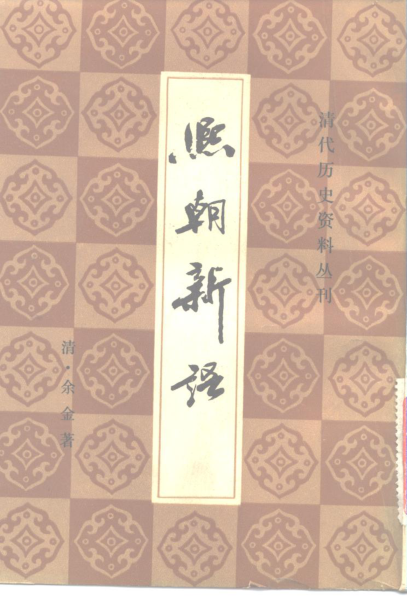 清代历史资料丛刊
熙朝新语
清·余金著